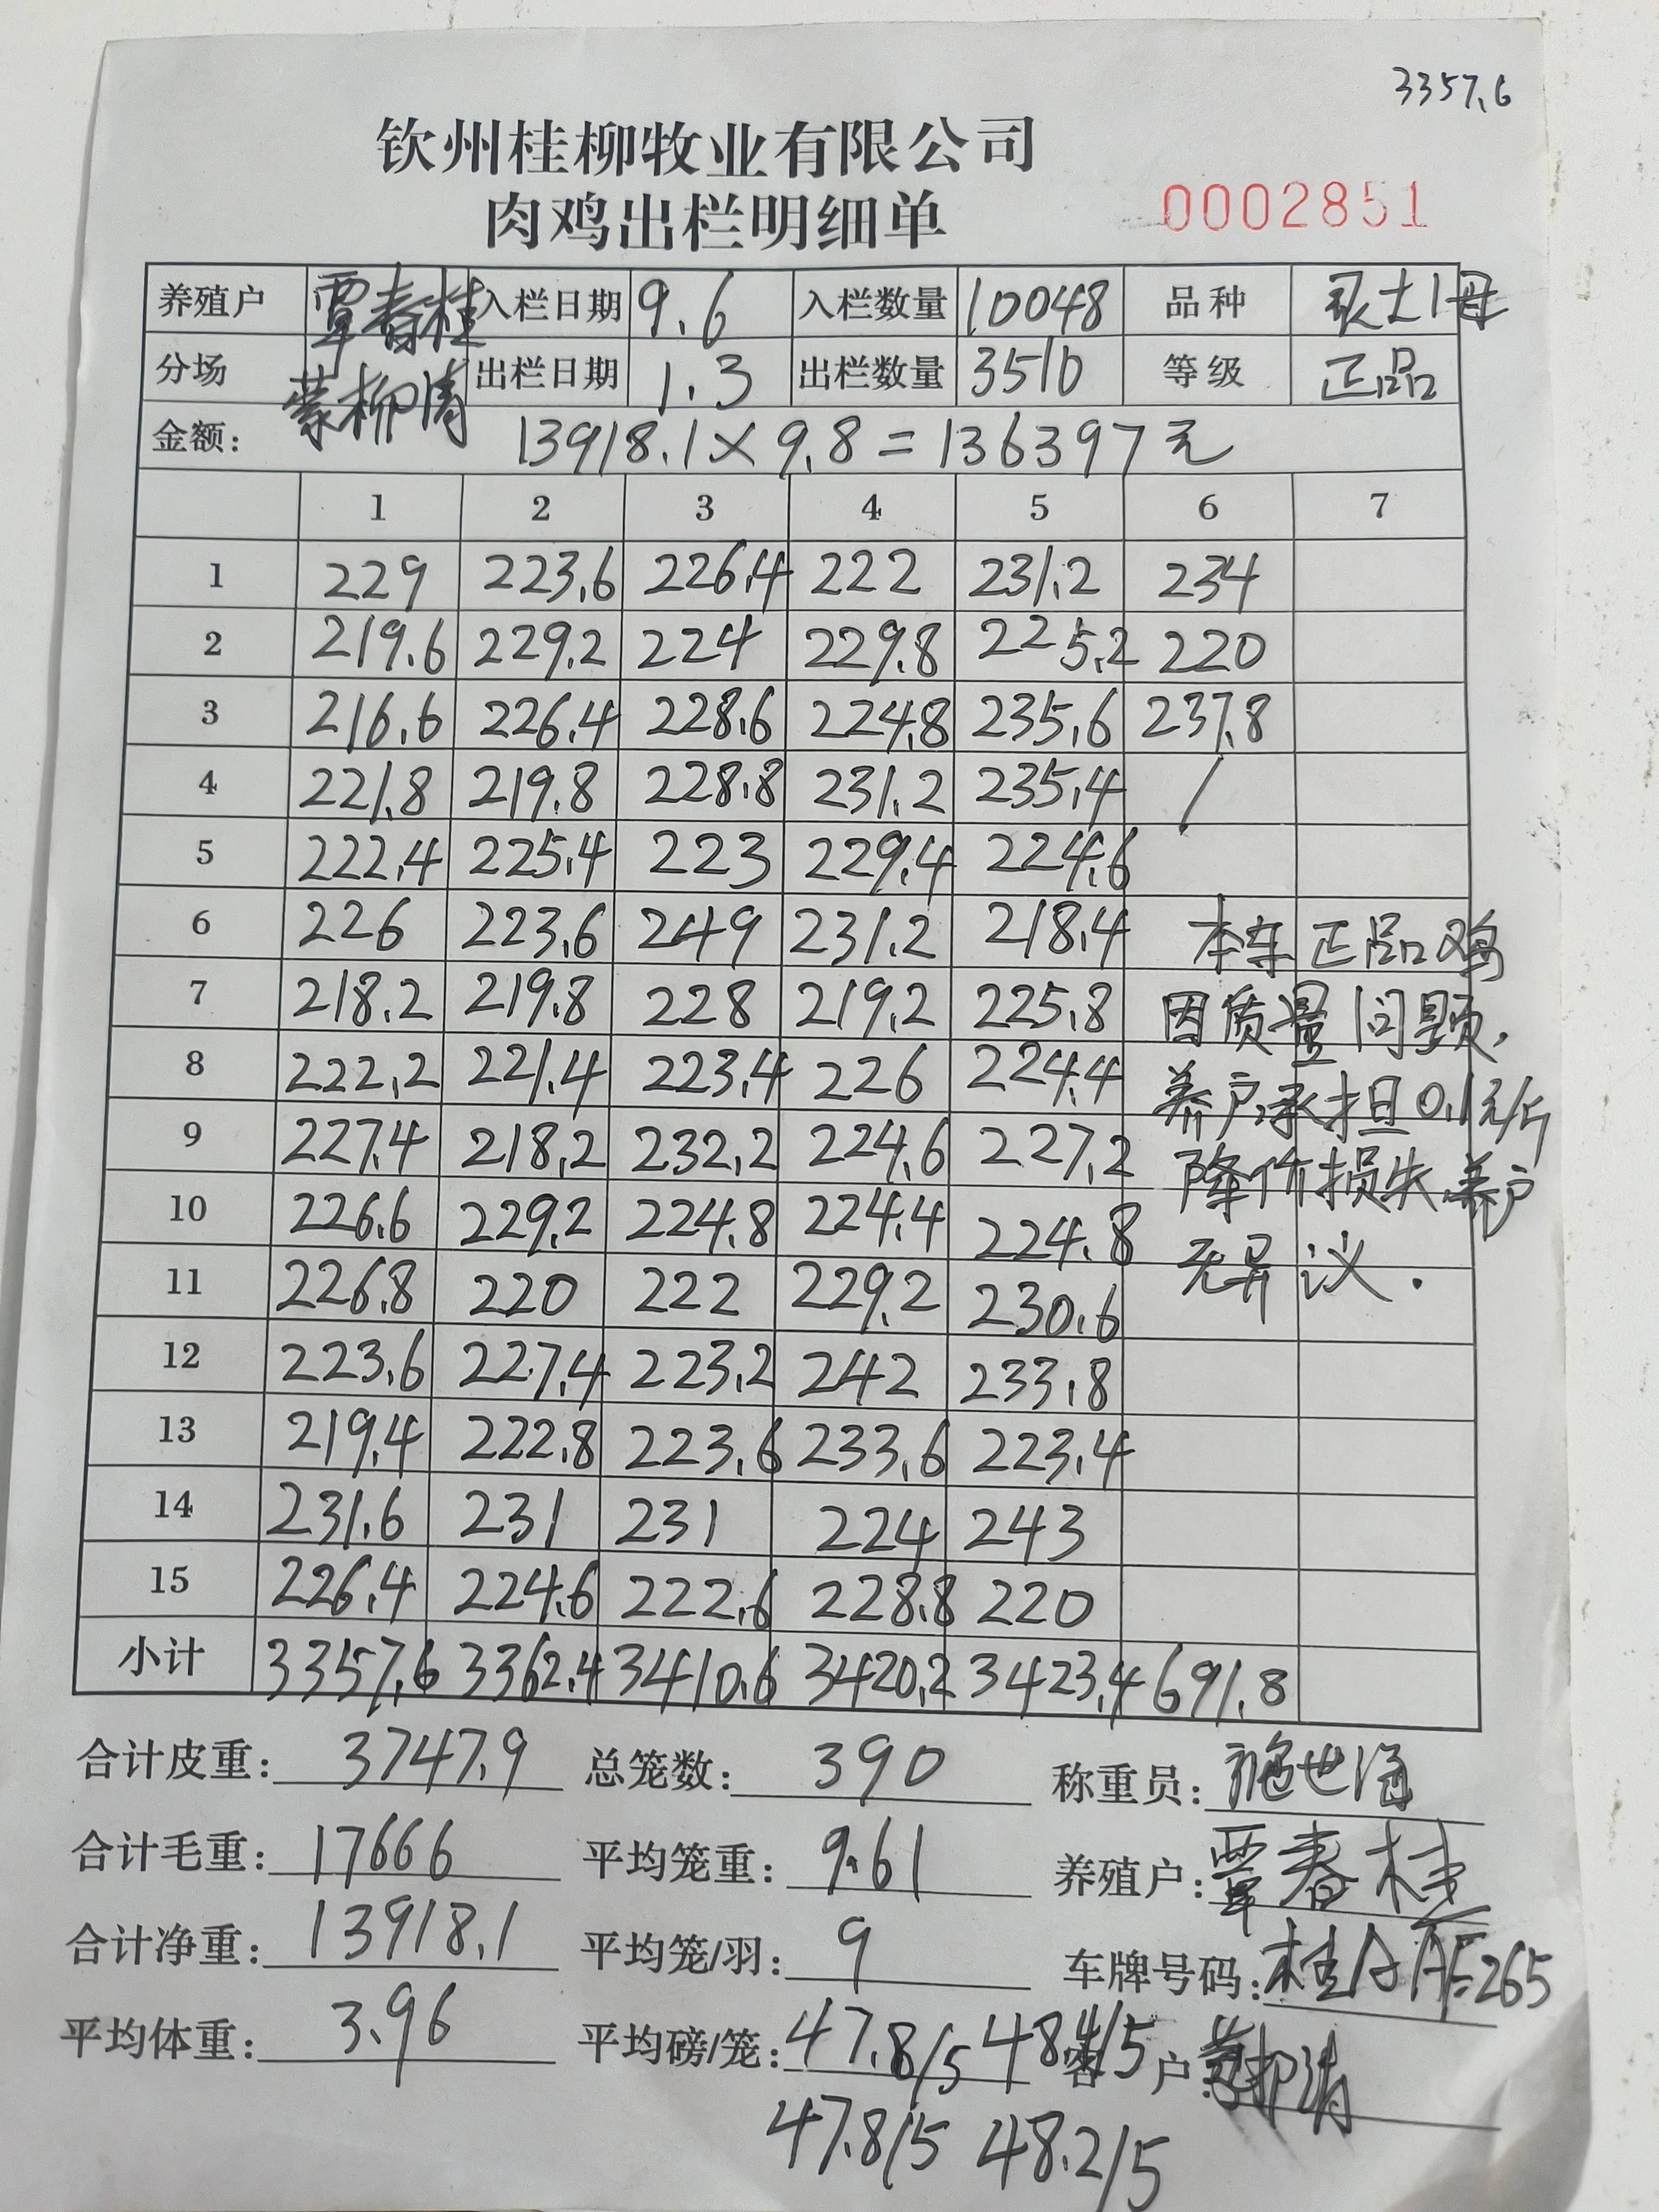 3357.6
钦州桂柳牧业有限公司
肉鸡出栏明细单 0002851
养殖户 覃春桂 入栏日期 9.6 入栏数量 10048 品种 土1母
分场 蒙柳清 出栏日期 1.3 出栏数量 3510 等级 正品
金额: 13918.1×9.8=136397元
1 2 3 4 5 6 7
1 229 223.6 226.4 222 231.2 234
2 219.6 229.2 224 229.8 225.2 220
3 216.6 226.4 228.6 224.8 235.6 237.8
4 221.8 219.8 228.8 231.2 235.4 /
5 222.4 225.4 223 229.4 224.6
6 226 223.6 249 231.2 218.4 本车正品鸡
7 218.2 219.8 228 219.2 225.8 因质量问题,
8 222.2 221.4 223.4 226 224.4 养户承担0.1元/斤
9 227.4 218.2 232.2 224.6 227.2 降价损失,养户
10 226.6 229.2 224.8 224.4 224.8 无异议.
11 226.8 220 222 229.2 230.6
12 223.6 227.4 223.2 242 233.8
13 219.4 222.8 223.6 233.6 223.4
14 231.6 231 231 224 243
15 226.4 224.6 222.6 228.8 220
小计 3357.6 3362.4 3410.6 3420.2 3423.4 691.8
合计皮重: 3747.9 总笼数: 390 称重员: 施世海
合计毛重: 17666 平均笼重: 9.61 养殖户: 覃春桂
合计净重: 13918.1 平均笼/羽: 9 车牌号码: 桂A 265
平均体重: 3.96 平均磅/笼: 47.8/5 48.4/5 客户 蒙柳清
47.8/5 48.2/5